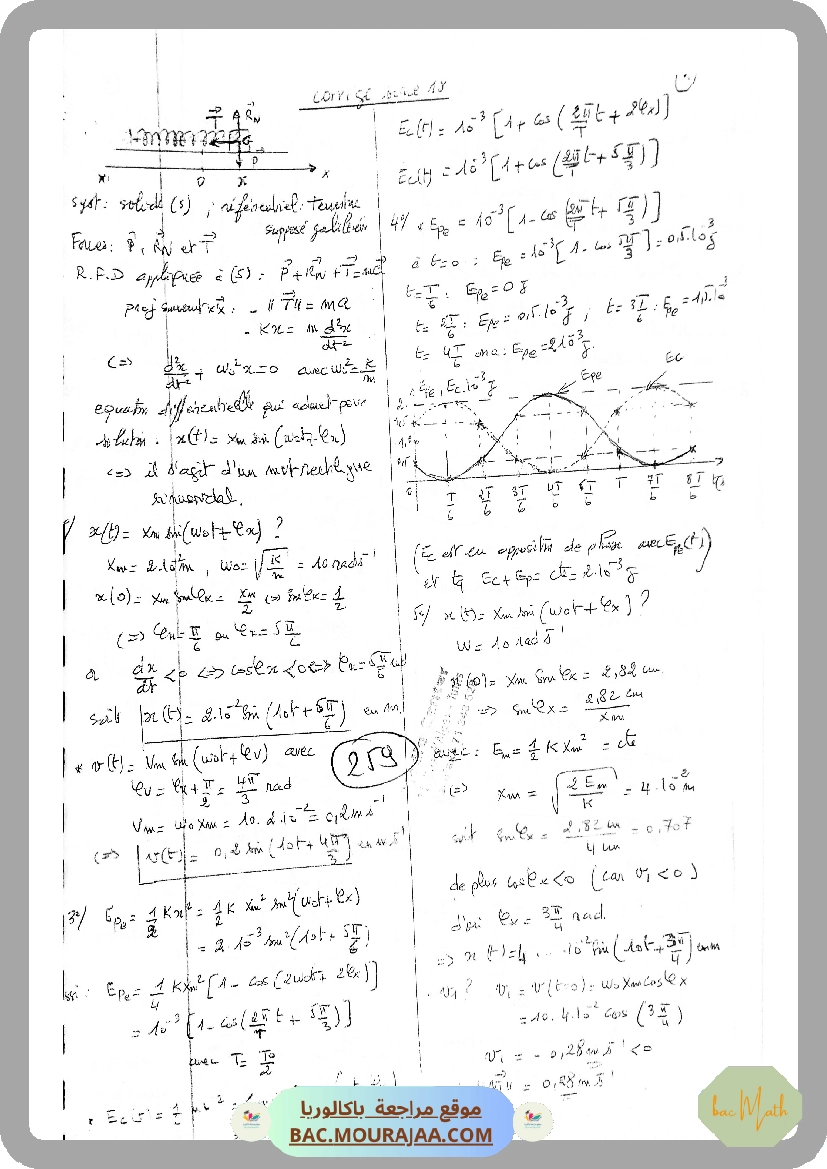 Corrigé série 18
T⃗ R⃗N
G
P⃗
x' 0 x x
Syst: solide (S) ; référentiel: terrestre
supposé galiléen
Forces: P⃗, R⃗N et T⃗
R.F.D appliquée à (S): P⃗ + R⃗N + T⃗ = ma⃗
proj suivant x'x: - ||T⃗|| = ma
- Kx = m d²x/dt²
<=> d²x/dt² + ω0²x = 0 avec ω0² = K/m
equation differentielle qui admet pour
solution. x(t) = xm sin(ω0t + φx)
<=> il s'agit d'un mvt rectiligne
sinusoidal.
x(t) = Xm sin(ω0t + φx) ?
Xm = 2.10⁻²m, ω0 = √(K/m) = 10 rad s⁻¹
x(0) = Xm sin φx = Xm/2 <=> sin φx = 1/2
<=> φx = π/6 ou φx = 5π/6
or dx/dt < 0 <=> cos φx < 0 <=> φx = 5π/6 rad
soit x(t) = 2.10⁻² sin(10t + 5π/6) en m
* v(t) = Vm sin(ω0t + φv) avec
φv = φx + π/2 = 4π/3 rad
Vm = ω0 Xm = 10. 2.10⁻² = 0,2 m s⁻¹
<=> v(t) = 0,2 sin(10t + 4π/3) en m.s⁻¹
259
3°/ Epe = 1/2 Kx² = 1/2 K Xm² sin²(ω0t + φx)
= 2.10⁻³ sin²(10t + 5π/6)
ssi: Epe = 1/4 KXm² [1 - cos(2ω0t + 2φx)]
= 10⁻³ [1 - cos(2π/T t + 5π/3)]
avec T = T0/2
Ec(t) = 10⁻³ [1 + cos(2π/T t + 2φx)]
Ec(t) = 10⁻³ [1 + cos(2π/T t + 5π/3)]
4°/ * Epe = 10⁻³ [1 - cos(2π/T t + 5π/3)]
à t=0 ; Epe = 10⁻³ [1 - cos 5π/3] = 0,5.10⁻³ J
t = T/6 : Epe = 0 J
t = 2T/6 : Epe = 0,5.10⁻³ J ; t = 3T/6 : Epe = 1,5.10⁻³
t = 4T/6 on a: Epe = 2.10⁻³ J.
Epe, Ec.10⁻³ J
Epe
Ec
2
0,5
0 T/6 2T/6 3T/6 4T/6 5T/6 T 7T/6 8T/6 t(s)
(Ec est en opposition de phase avec Epe(t))
et tq Ec + Ep = cte = 2.10⁻³ J
5°/ x(t) = Xm sin(ω0t + φx) ?
ω = 10 rad s⁻¹
x(0) = Xm sin φx = 2,82 cm
=> sin φx = 2,82 cm/Xm
avec: Em = 1/2 K Xm² = cte
<=> Xm = √(2Em/K) = 4.10⁻² m
soit sin φx = 2,82 cm/4 cm = 0,707
de plus cos φx < 0 (car v1 < 0)
d'où φx = 3π/4 rad.
=> x(t) = 4 .. 10⁻² sin(10t + 3π/4) en m
. v1 ? v1 = v(t=0) = ω0 Xm cos φx
= 10. 4.10⁻² cos(3π/4)
v1 = - 0,28 m s⁻¹ < 0
= 0,28 m s⁻¹
موقع مراجعة باكالوريا
BAC.MOURAJAA.COM
bac Math